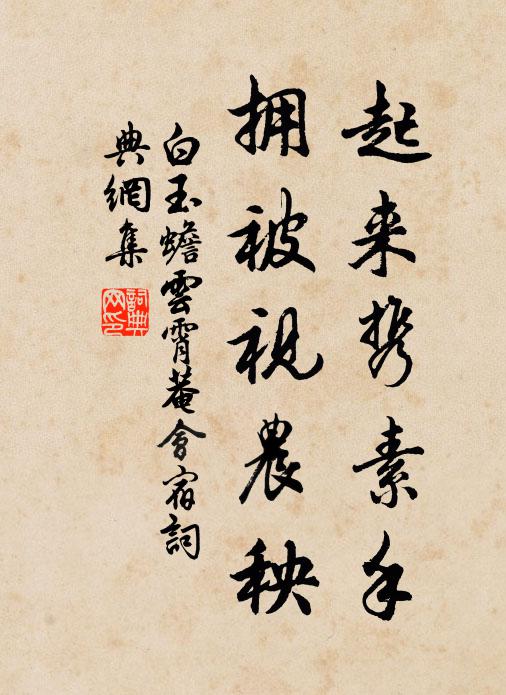 起来携素手
拥被視農秧
白玉蟾雲霄菴會宿詞
典網集
詞典网印